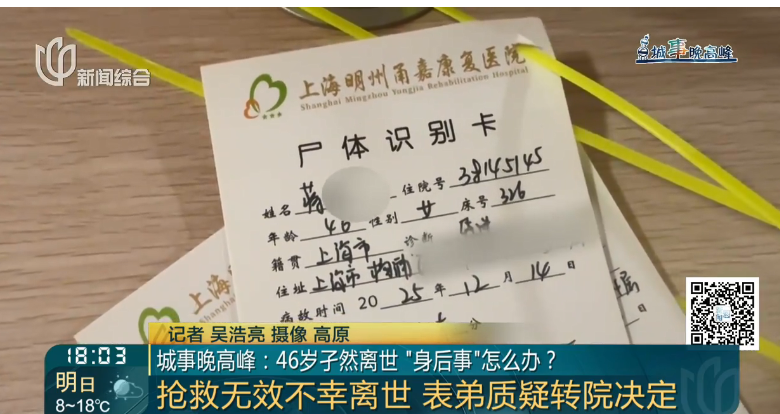 新闻综合
城事晚高峰
上海明州甬嘉康复医院
Shanghai Mingzhou Yongjia Rehabilitation Hospital
尸体识别卡
姓名 蒋 住院号 38145145
年龄 46 性别 女 床号 326
籍贯 上海市 诊断
住址 上海市
病故时间 2025年12月14日
分
上海
Shanghai
记者 吴浩亮 摄像 高原
18:03
城事晚高峰：46岁孑然离世 "身后事"怎么办？
明日
8~18℃
抢救无效不幸离世 表弟质疑转院决定